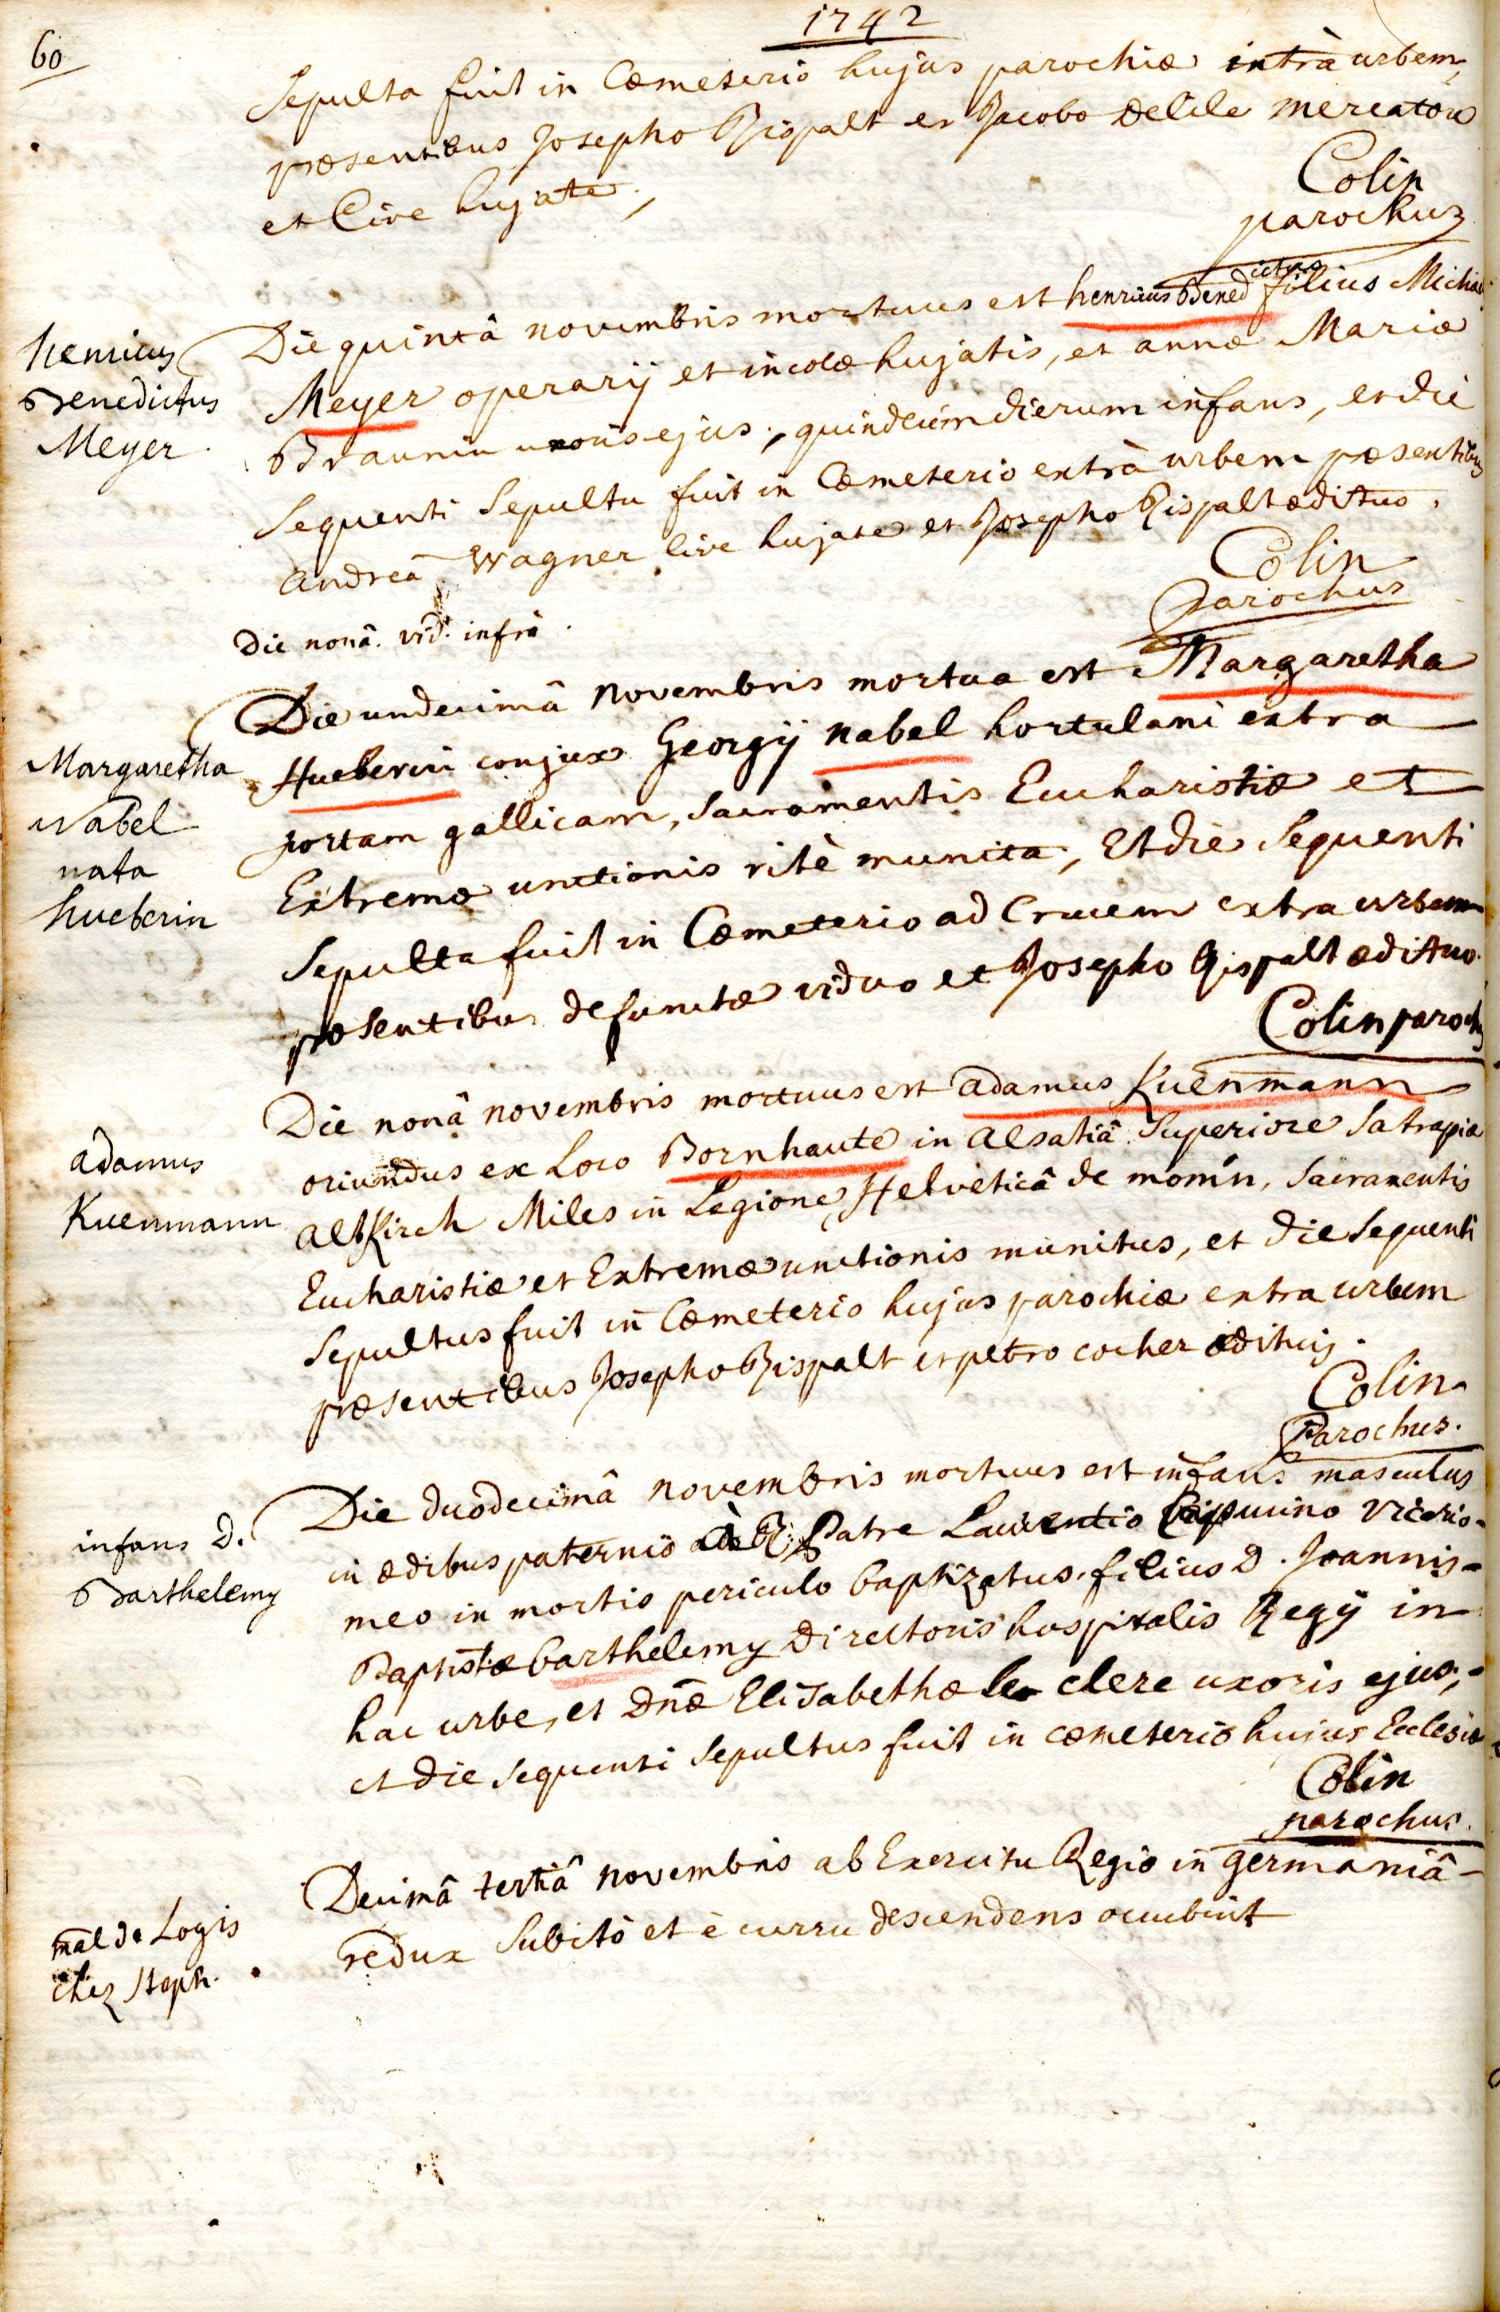 60
1742
Sepulta fuit in Cœmeterio hujus parochiæ intrà urbem,
præsentibus Josepho Rispalt et Jacobo Delile mercatore
et Cive hujate.
Colin
parochus
henricus
Benedictus
Meyer
Die quintâ novembris mortuus est henricus Benedictus filius Michael
Meyer operarij et incolæ hujatis, et annæ Mariæ
Braunin uxoris ejus, quindecim dierum infans, et die
Sequenti Sepultu fuit in Cœmeterio extrà urbem præsentibus
Andreâ Wagner Cive hujate et Josepho Rispalt ædituo.
Colin
Parochus
Die nonâ. vid. infrà.
Margaretha
Nabel
nata
hueberin
Die undecimâ novembris mortua est Margaretha
Hueberin conjux Georgij Nabel hortulani extra
portam gallicam, Sacramentis Eucharistiæ et
Extremæ unctionis ritè munita, Et die Sequenti
Sepulta fuit in Cœmeterio ad Crucem extra urbem
præsentibus defunctæ viduo et Josepho Rispalt ædituo.
Colin paroch
adamus
Kuenmann
Die nonâ novembris mortuus est adamus Kuenmann
oriundus ex Loco Bornhaute in Alsatiâ Superiore Satrapia
altKirch Miles in Legione Helveticâ de momin, Sacramentis
Eucharistiæ et Extremæ unctionis munitus, et die Sequenti
Sepultus fuit in Cœmeterio hujus parochiæ extra urbem
præsentibus Josepho Rispalt et petro cocher ædituis.
Colin
Parochus.
infans D.
Barthelemy
Die duodecimâ novembris mortuus est infans masculus
in ædibus paternis à R. Patre Laurentio Capucino vicario
meo in mortis periculo baptizatus, filius D. Joannis
Baptistæ barthelemy Directoris hospitalis Regij in
hac urbe, et Dnæ Elisabethæ le clere uxoris ejus,
et die sequenti Sepultus fuit in cœmeterio hujus Ecclesiæ
Colin
parochus.
mal de Logis
chez Steph.
Decimâ tertiâ novembris ab Exercitu Regio in germaniâ
redux Subitò et è curru descendens occubuit